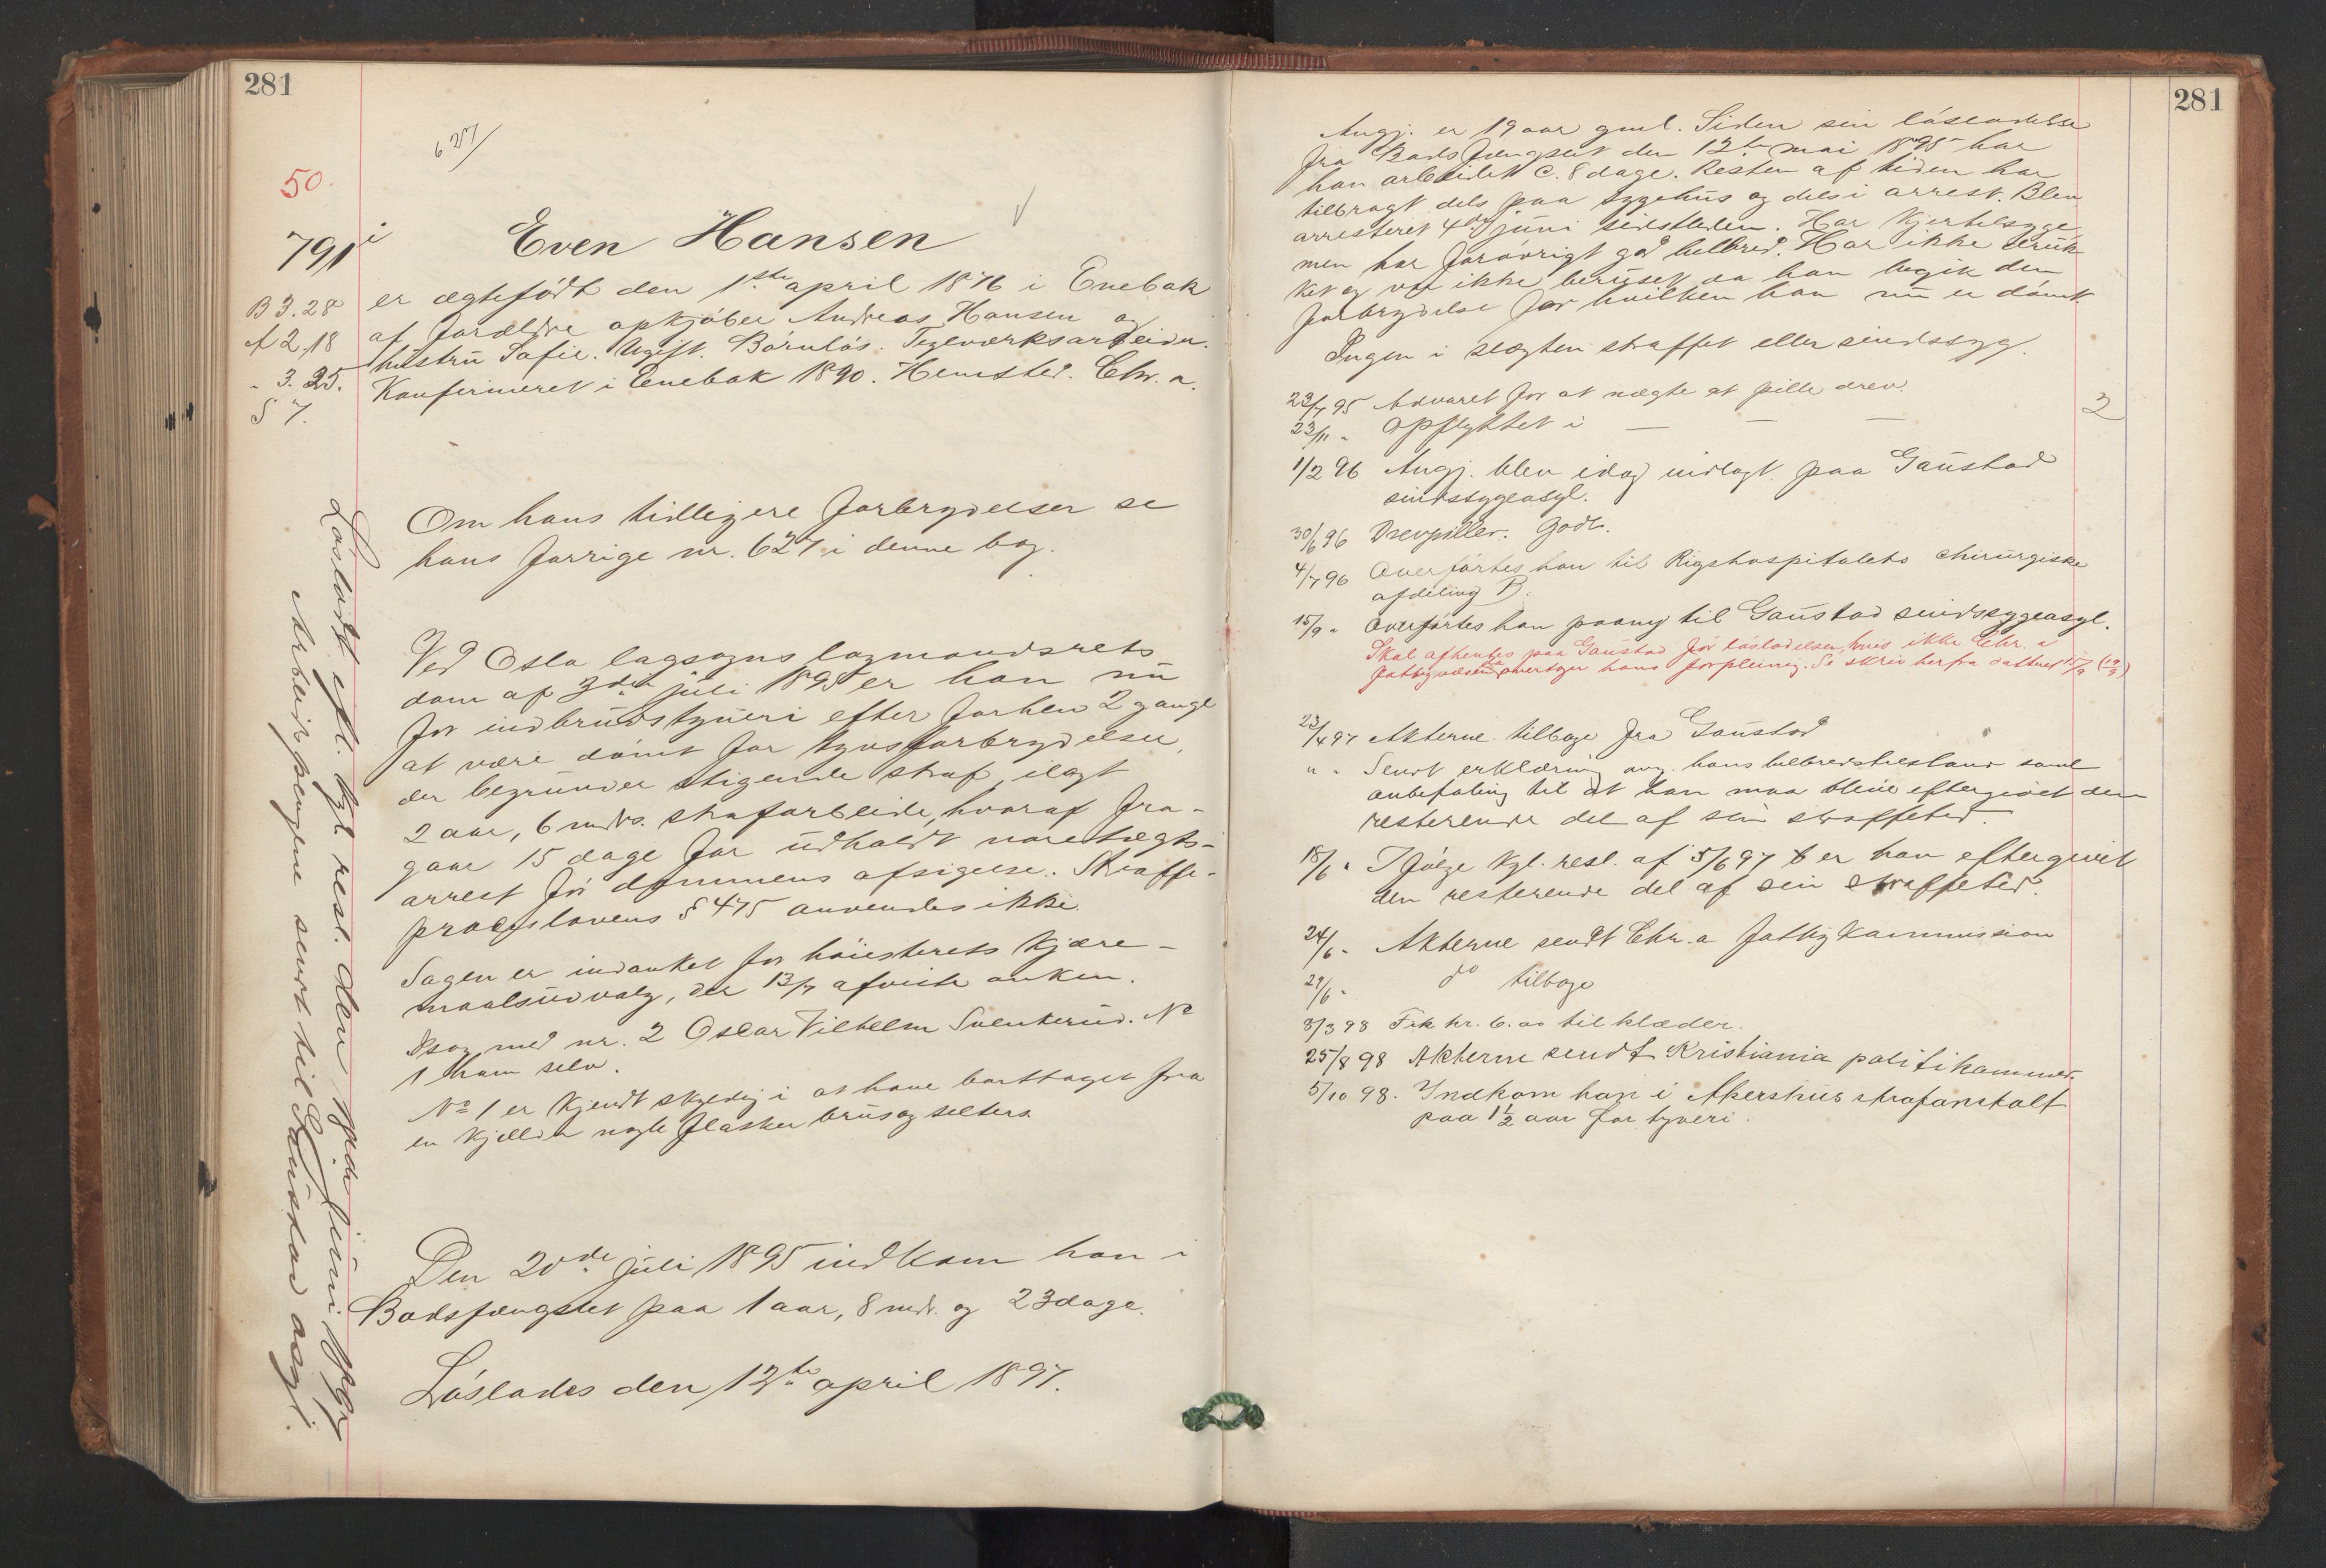 281
627/
50.
791 i
Even Hansen
B 3. 28
A 2. 18
" 3. 25.
S 7.
er ægtefödt den 1ste april 1876 i Enebak
af forældre opkjöber Andreas Hansen og
hustru Sofie. Ugift. Börnlös. Teglværksarbeider.
Konfirmeret i Enebak 1890. Hemsted. Chr.a.
Om hans tidligere forbrydelser se
hans forrige nr. 627 i denne bog.
Ved Oslo lagsogns lagmandsrets
dom af 3die juli 1895 er han nu
for indbrudstyveri efter forhen 2 gange
at være dömt for tyvsforbrydelser,
der begrunder stigende straf, ilagt
2 aar, 6 mdrs. strafarbeide, hvoraf fra-
gaar 15 dage for udholdt varetægts-
arrest för dommens afsigelse. Straffe-
proceslovens § 475 anvendes ikke.
Sagen er indanket for höiesterets kjære-
maalsudvalg, der 13/7 afviste anken.
Dsag med nr. 2 Oscar Vilhelm Svenkerud. No
1 ham selv.
No 1 er kjendt skyldig i at have borttaget fra
en kjelder nogle flasker brus og selters
Den 20de juli 1895 indkom han i
Bodsfængslet paa 1 aar, 8 mdr. og 23 dage.
Löslades den 12te april 1897.
Lösladt efl. kgl. resl. den juni 1897
Arbeidspengene sendt til Gaustad asyl.
281
Angj. er 19 aar gml. Siden sin lösladelse
fra Bodsfængslet den 12te mai 1895 har
han arbeidet c. 8 dage. Resten af tiden har
tilbragt dels paa sygehus og dels i arrest. Blev
arresteret 4de juni sidstleden. Har kjertelsyge
men har forövrigt god helbred. Har ikke druk-
ket og var ikke beruset da han begik den
forbrydelse for hvilken han nu er dömt.
Ingen i slægten straffet eller sindssyg.
23/7 95 Advaret for at nægte at pille drev.
2
23/11 " Opflyttet i — — —
1/2 96 Angj. blev idag indlagt paa Gaustad
sindssygeasyl.
30/6 96 Drevpiller. Godt.
4/7 96 Overförtes han til Rigshospitalets chirurgiske
afdeling B.
15/9 " Overförtes han paany til Gaustad sindssygeasyl.
Skal afhentes paa Gaustad för lösladelsen, hvis ikke Chr.a
fattigvæsen overtager hans forpleining. Se skriv herfra dateret 15/9 (19/9)
23/4 97 Akterne tilbage fra Gaustad
" " Sendt erklæring ang. hans helbredstilstand samt
anbefaling til at han maa blive eftergivet den
resterende del af sin straffetid.
18/6 " I fölge kgl. resl. af 5/6 97 er han eftergivet
den resterende del af sin straffetid.
24/6 " Akterne sendt Chr.a fattigkommission
29/6 " do tilbage
8/3 98 Fik kr. 6.00 til klæder.
25/8 98 Akterne sendt Kristiania politikammer.
5/10 98. Indkom han i Akershus strafanstalt
paa 1 1/2 aar for tyveri.